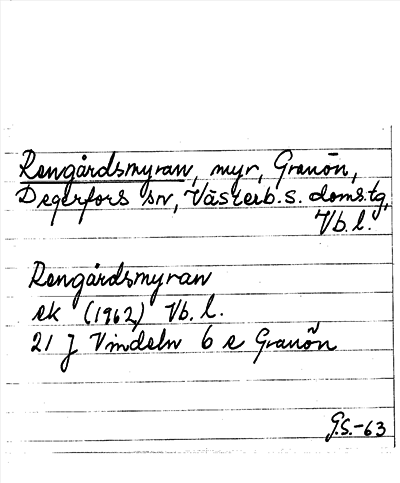 Rengårdsmyran, myr, Granön,
Degerfors sn, Västerb. s. doms.tg,
Vb. l.
Rengårdsmyran
ek (1962) Vb. l.
21 J Vindeln 6 e Granön
G.S.-63